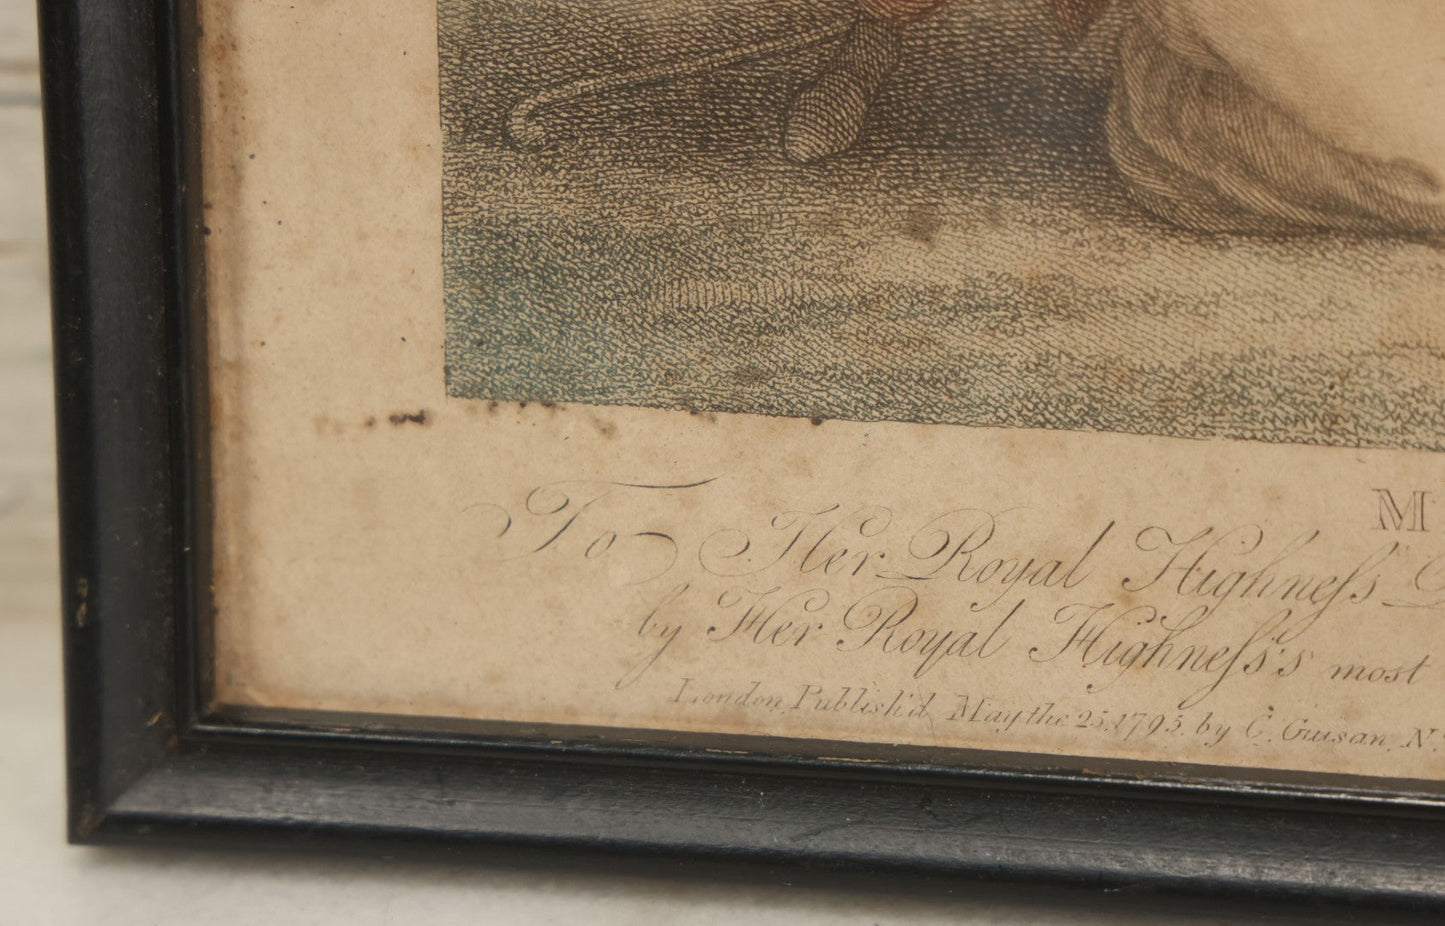 M
To Her Royal Highneſs
by Her Royal Highneſs's most
London, Publish'd May the 25, 1795, by C. Guisan, N.